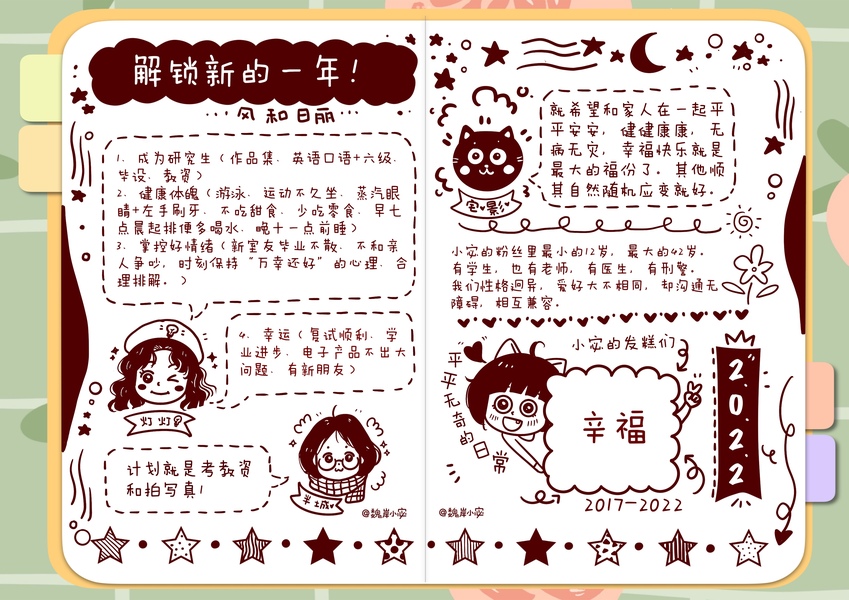 解锁新的一年！
···风和日丽···
1. 成为研究生（作品集. 英语口语+六级.
毕设. 教资）
2. 健康体魄（游泳. 运动不久坐. 蒸汽眼
睛+左手刷牙. 不吃甜食. 少吃零食. 早七
点晨起排便多喝水. 晚十一点前睡）
3. 掌控好情绪（新室友毕业不散. 不和亲
人争吵，时刻保持“万幸还好”的心理. 合
理排解。）
4. 幸运（复试顺利. 学
业进步. 电子产品不出大
问题. 有新朋友）
灯灯
计划就是考教资
和拍写真！
半城
@魏岸小宓
就希望和家人在一起平
平安安，健健康康，无
病无灾，幸福快乐就是
最大的福份了。其他顺
其自然随机应变就好。
宅影
小宓的粉丝里最小的12岁，最大的42岁。
有学生，也有老师，有医生，有刑警。
我们性格迥异，爱好大不相同，却沟通无
障碍，相互兼容。
小宓的发糕们
平平无奇的日常
辛福
2017-2022
2022
@魏岸小宓